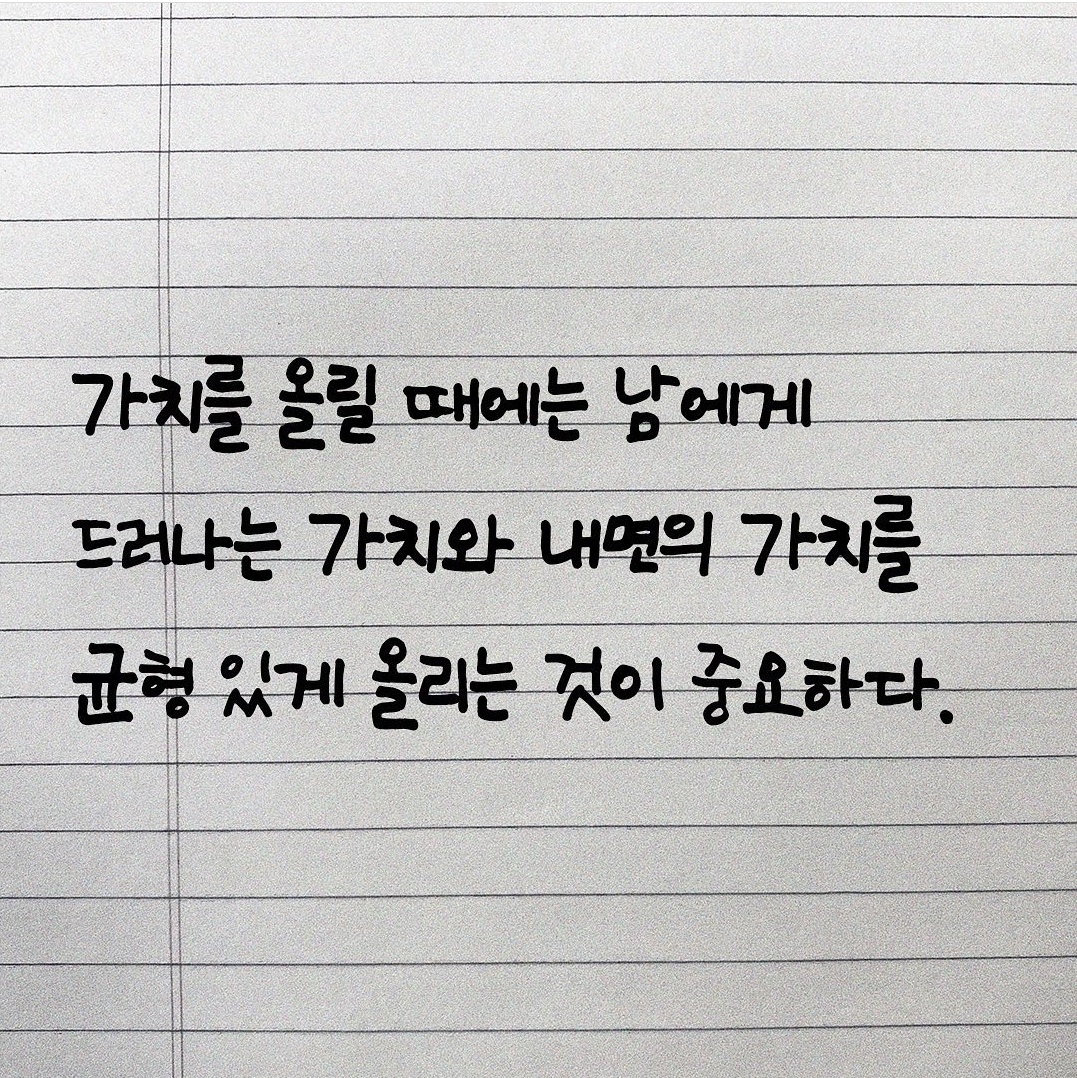 가치를 올릴 때에는 남에게
드러나는 가치와 내면의 가치를
균형 있게 올리는 것이 중요하다.